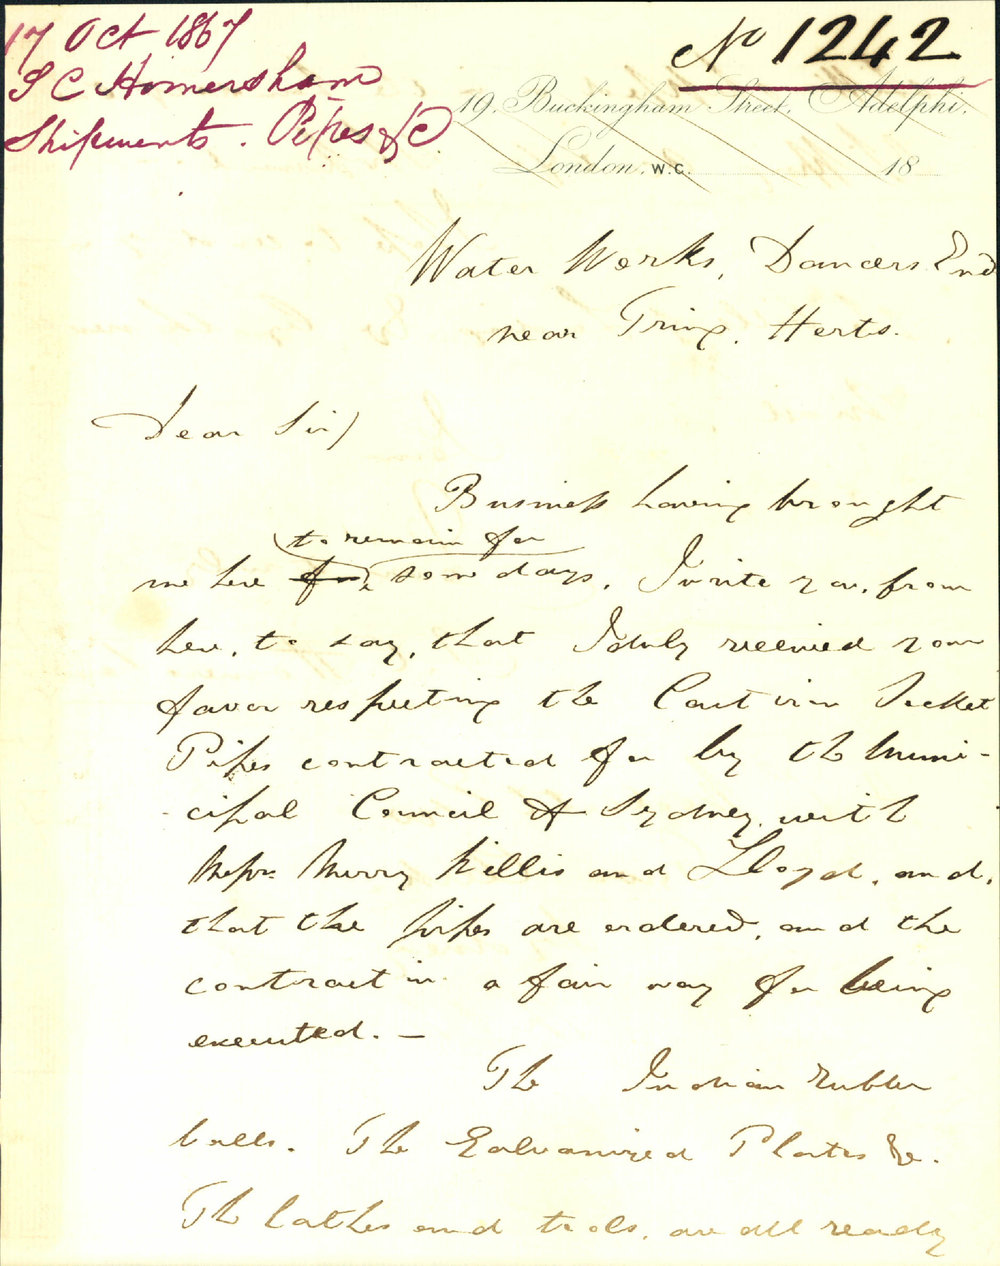 17 Oct 1867
S C Homersham
Shipments. Pipes &c
No 1242
19, Buckingham Street, Adelphi,
London, W.C. 18
Water Works, Dancers End
near Tring, Herts.
Dear Sir/
Business having brought
to remain for
me here for some days, I write you, from
here, to say, that I duly received your
favor respecting the Cast iron Socket
Pipes contracted for by the Muni-
-cipal Council of Sydney, with
Messrs. Merry Killis and Lloyd, and,
that the pipes are ordered, and the
contract in a fair way for being
executed. —
The Indian rubber
balls. The Galvanized Plates &c.
The lathes and tools, are all ready